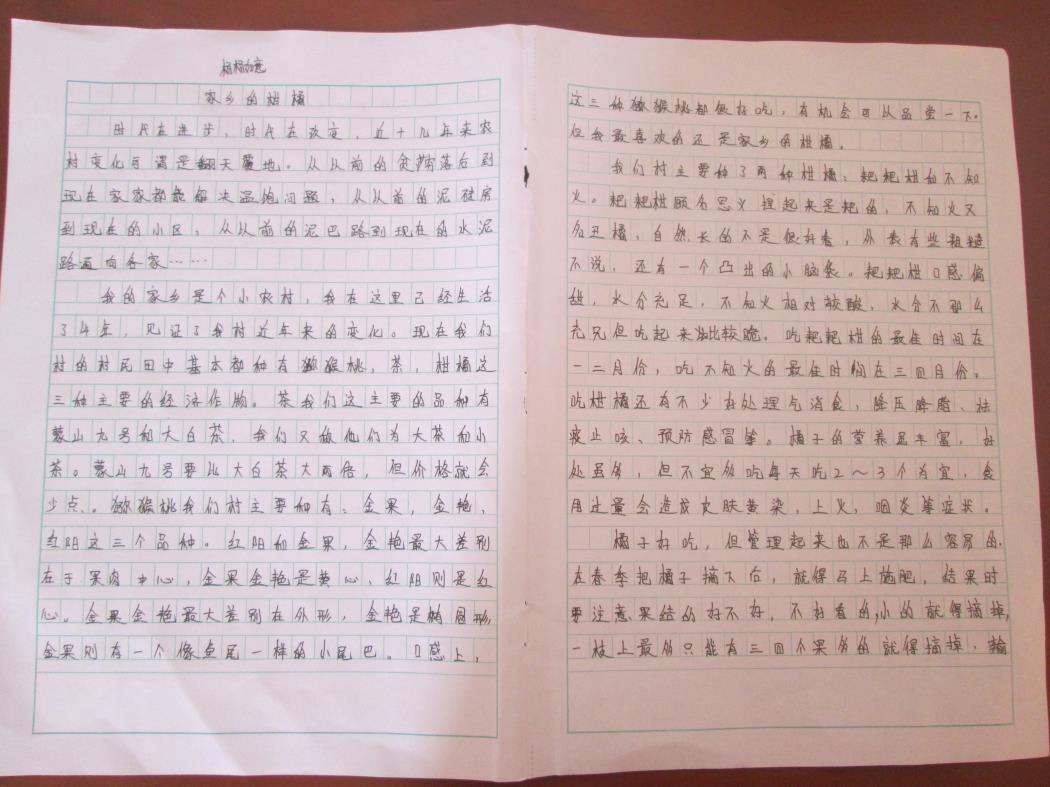 杨杨如意
家乡的柑橘
时代在进步，时代在改变，近十几年来农
村变化可谓是翻天覆地。从以前的贫穷落后到
现在家家都能解决温饱问题，从以前的泥砖房
到现在的小区，从以前的泥巴路到现在的水泥
路通向各家……
我的家乡是个小农村，我在这里已经生活
了4年，见证了我村近年来的变化。现在我们
村的村民田中基本都种有猕猴桃，茶，柑橘这
三种主要的经济作物。茶我们这主要的品种有
蒙山九号和大白茶，我们又做他们为大茶和小
茶。蒙山九号要比大白茶大两倍，但价格就会
少点。猕猴桃我们村主要种有：金果，金艳，
红阳这三个品种。红阳和金果，金艳最大差别
在于果肉中心，金果金艳是黄心，红阳则是红
心。金果金艳最大差别在外形，金艳是椭圆形，
金果则有一个像鱼尾一样的小尾巴。口感上，
这三种猕猴桃都很好吃，有机会可以品尝一下。
但我最喜欢的还是家乡的柑橘。
我们村主要种了两种柑橘：耙耙柑和不知
火。耙耙柑顾名思义捏起来是耙的，不知火又
名丑橘，自然长的不是很好看，外表有些粗糙
不说，还有一个凸出的小脑袋。耙耙柑口感偏
甜，水分充足，不知火相对较酸，水分不那么
充足但吃起来比较脆。吃耙耙柑的最佳时间在
一二月份，吃不知火的最佳时间在三四月份。
吃柑橘还有不少好处理气消食，降压降脂、祛
痰止咳、预防感冒等。橘子的营养虽丰富，好
处虽多，但不宜多吃每天吃2～3个为宜，食
用过量会造成皮肤黄染，上火，咽炎等症状。
橘子好吃，但管理起来也不是那么容易的。
在春季把橘子摘下后，就得马上施肥，结果时
要注意果结的好不好，不好看的，小的就得摘掉，
一枝上最多只能有三四个果多的就得摘掉，输